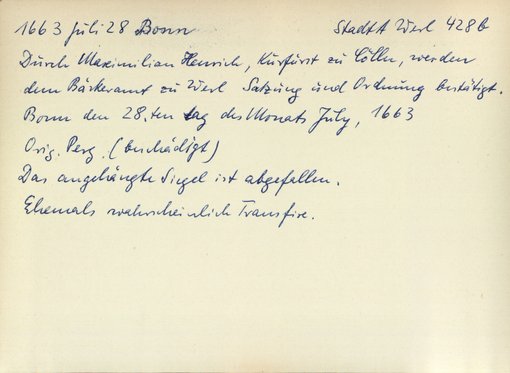 1663 Juli 28 Bonn StadtA Werl 428b
Durch Maximilian Henrich, Kurfürst zu Cölln, werden
dem Bäkeramt zu Werl Satzung und Ordnung bestätigt.
Bonn den 28.ten tag des Monats July, 1663
Orig. Perg. (beschädigt)
Das angehängte Siegel ist abgefallen.
Ehemals wahrscheinlich Transfixe.